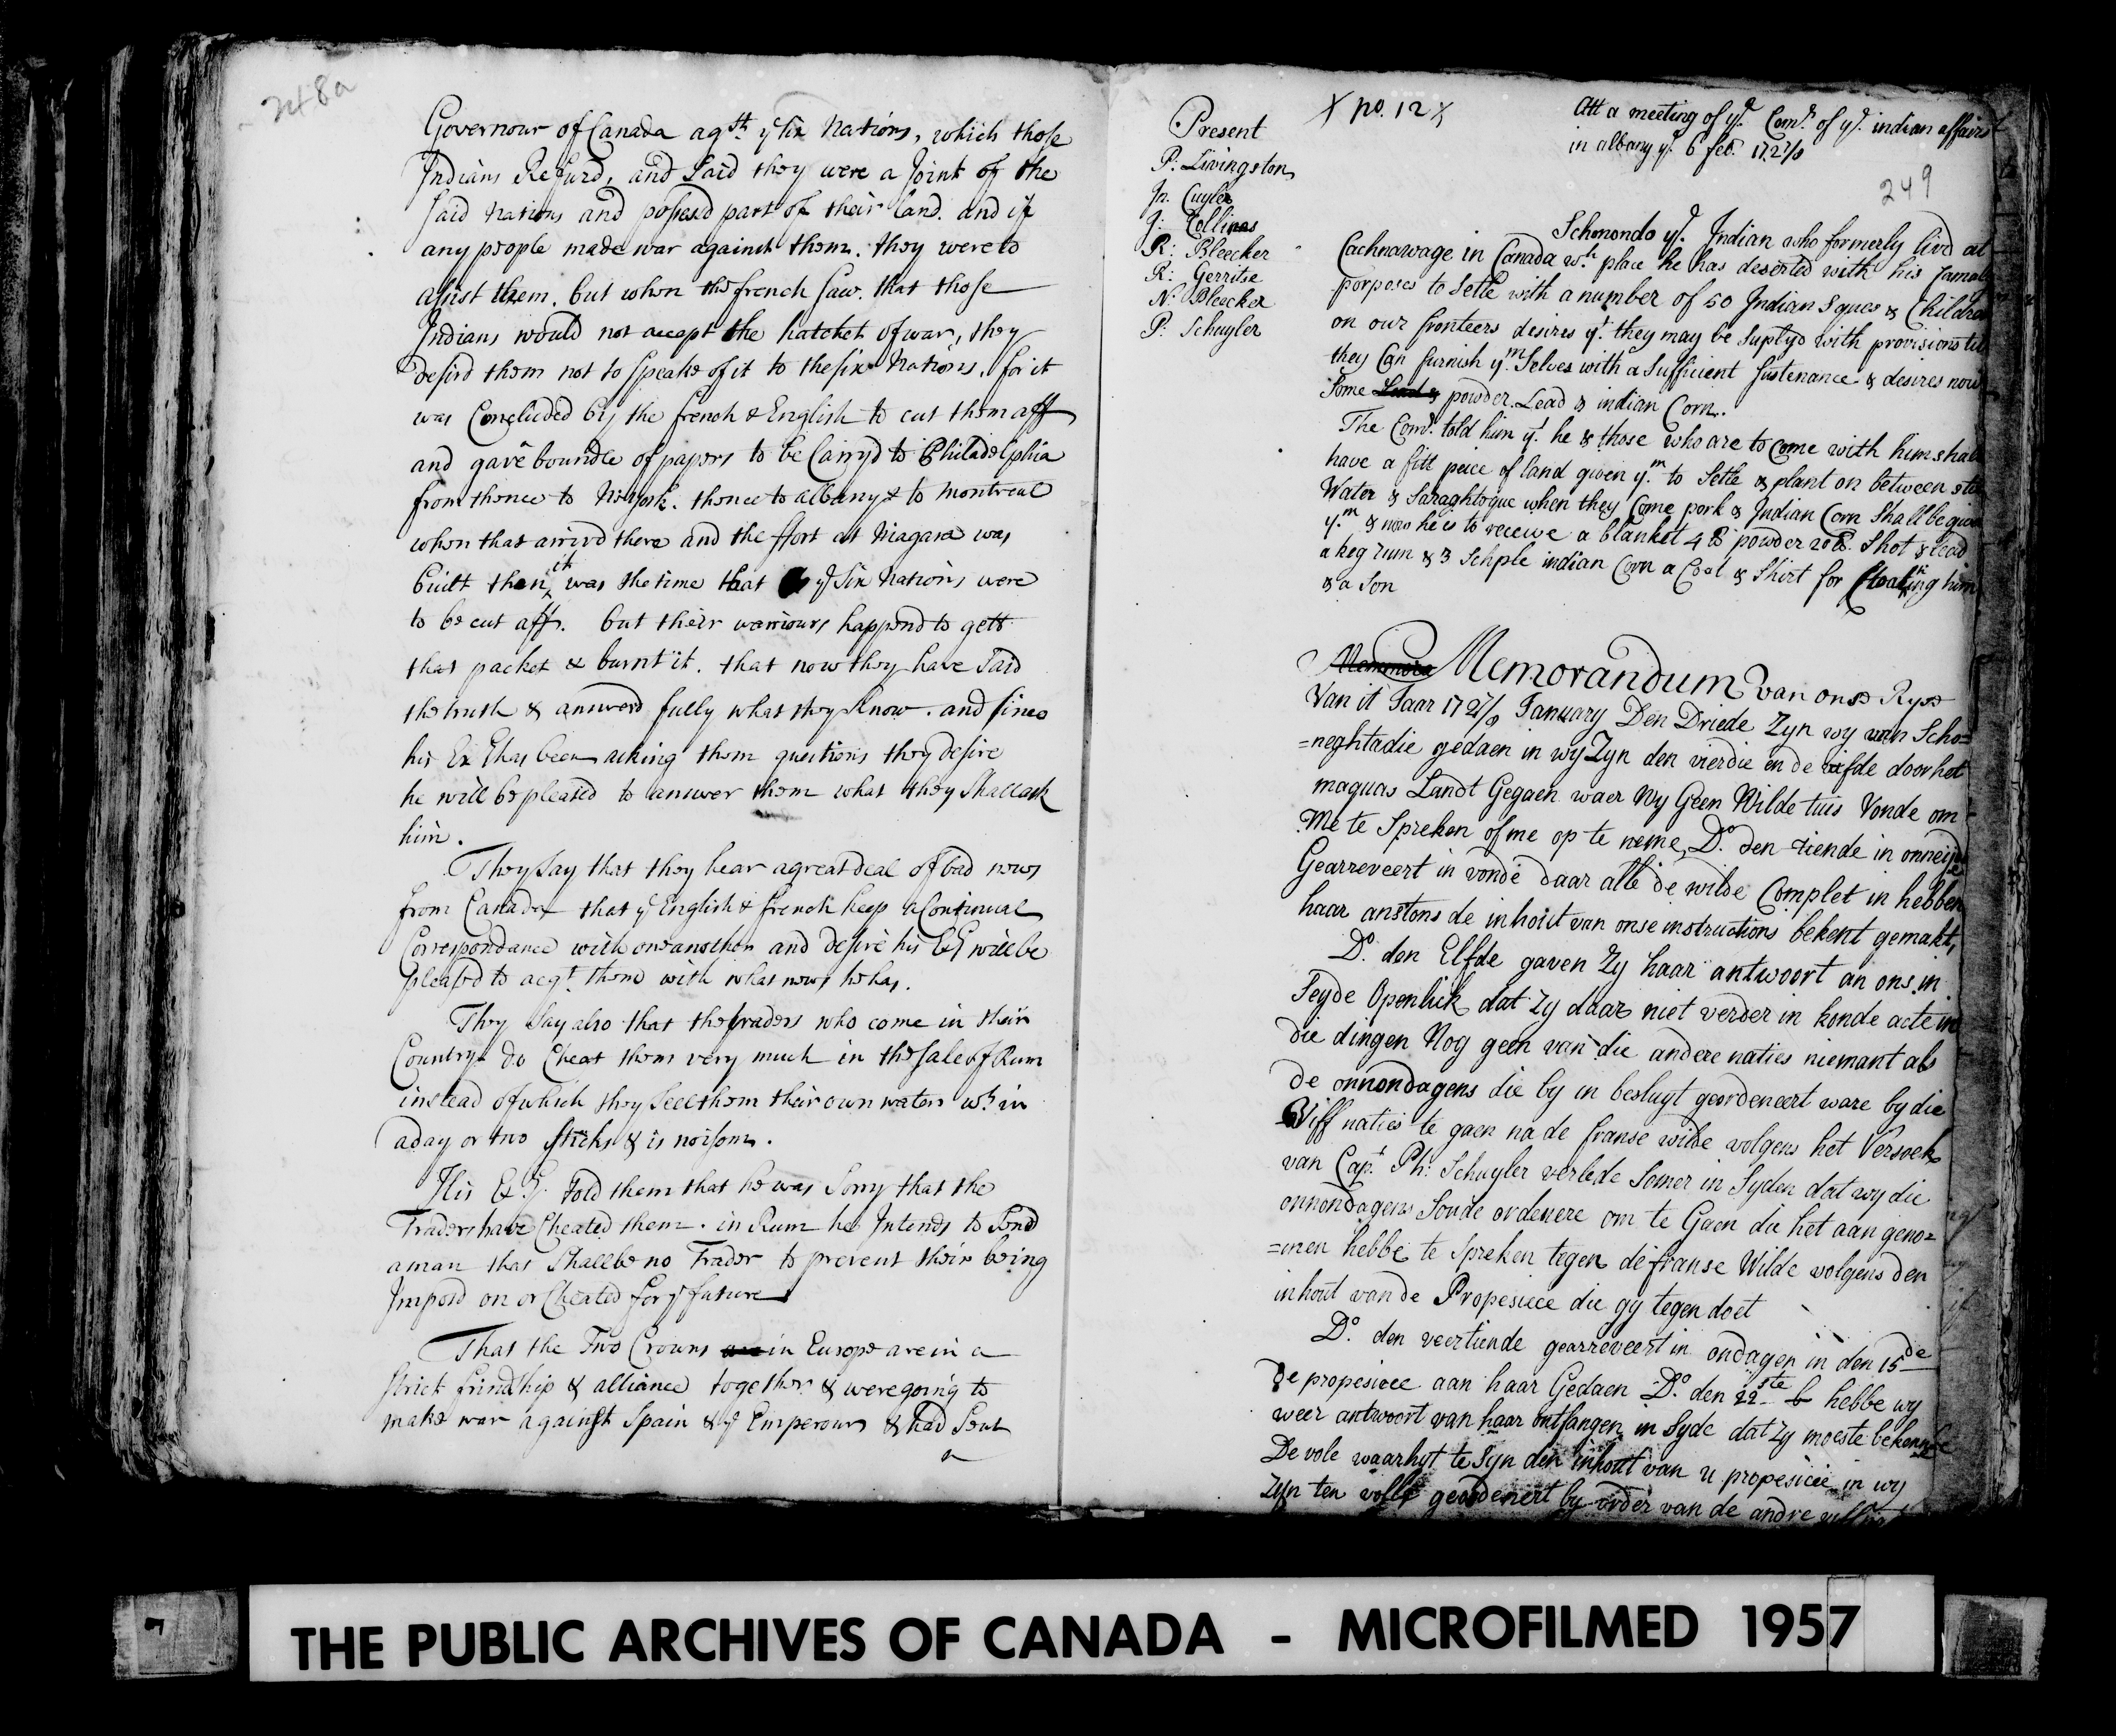 248a
Governour of Canada agth ye six Nations, which those
Indians Refusd, and Said they were a Joint of the
said Nations and possesd part of their land. and if
any people made war against them. they were to
assist them. but when the french saw. that those
Indians would not accept the hatchet of war, they
desird them not to speake of it to the six Nations. for it
was Concluded by the french & English to cut them aff
and gave boundle of papers to be Carryd to Philadelphia
from thence to NYork. thence to albany & to montreal
when that arrivd there and the ffort at Niagara was
built then it was the time that ye Six Nations were
to be cut aff. but their warriours happend to gett
that packet & burnt it. that now they have said
the truth & answerd fully what they know. and since
his Ex.y has been asking them questions they desire
he will be pleased to answer them what they Shall ask
him.
They Say that they hear a great deal of bad news
from Canada that ye English & french keep a Continual
Correspondance with one another and desire his Ex.y will be
pleased to acqt. them with what news he has.
They Say also that the traders who come in their
Country do Cheat them very much in the sale of Rum
instead of which they Sell them their own water wh in
a day or two stinks & is noisom.
His Ex.y. Told them that he was Sorry that the
Traders have Cheated them. in Rum he Intends to Send
a man that Shall be no Trader to prevent their being
Imposd on or Cheated for ye future
That the Two Crowns are in Europe are in a
strict frindship & alliance together & were going to
make war against Spain & ye Emperour & had Sent
a
Present
P: Livingston
Jn. Cuyler
J: Collins
R: Bleecker
R: Gerritse
N: Bleecker
P: Schuyler
X no. 12 X
Att a meeting of ye. Comrs of ye. indian affairs
in albany ye. 6 feb. 1727/8
249
Schonondo ye. Indian who formerly livd at
Cachnawage in Canada wh. place he has deserted with his famaly
porposes to Setle with a number of 50 Indian Squas & Children
on our fronteers desires yt. they may be Suplyd with provisions till
they Can furnish ym. Selves with a Sufficient Sustenance & desires now
Some Lead & powder. Lead & indian Corn.
The Comrs. told him yt. he & those who are to come with him shall
have a fitt peice of land given ym. to Setle & plant on between still
Water & Saraghtogue when they Come pork & Indian Corn Shall be given
ym. & now he is to receive a blanket 4 lb powder 20 lb. Shot & lead
a keg rum & 3 Schple indian Corn a Coat & Shirt for Cloathing him
& a Son
Memmora Memorandum van onse Ryse
Van it Jaar 1727/8 January Den Driede Zyn wy van Scho=
=neghtadie gedaen in wij Zyn den vierdie en de vifde door het
maquas Landt Gegaen waer Wy Geen Wilde tuis Vonde om
Me te Spreken of me op te neme, Do. den tiende in onneijde
Gearreveert in vonde daar alle de wilde Complet in hebben
haar anstons de inhout van onse instructions bekent gemakt,
Do. den Elfde gaven Zy haar antwoort an ons in
Seyde Openlick dat Zy daar niet verder in konde acte in
die dingen Nog geen van die andere naties niemant als
de onnondagens die by in beslugt geordeneert ware by die
Viff naties te gaen na de franse wilde volgens het Versoek
van Capt. Ph: Schuyler verlede Somer in Syden dat wy die
onnondagens Soude ordenere om te Gaen die het aan geno=
=men hebbe te Spreken tegen de franse Wilde volgens den
inhout van de Propesicee die gy tegen doet
Do. den veertiende gearreveert in ondagen in den 15de
De propesicee aan haar Gedaen Do. den 22ste hebbe wy
weer antwoort van haar ontfangen in Syde dat Zy moeste bekenne
De vole waarhyt te Syn den inhout van u propesicie in wy
Zyn ten volle geordenert by order van de andre
THE PUBLIC ARCHIVES OF CANADA - MICROFILMED 1957